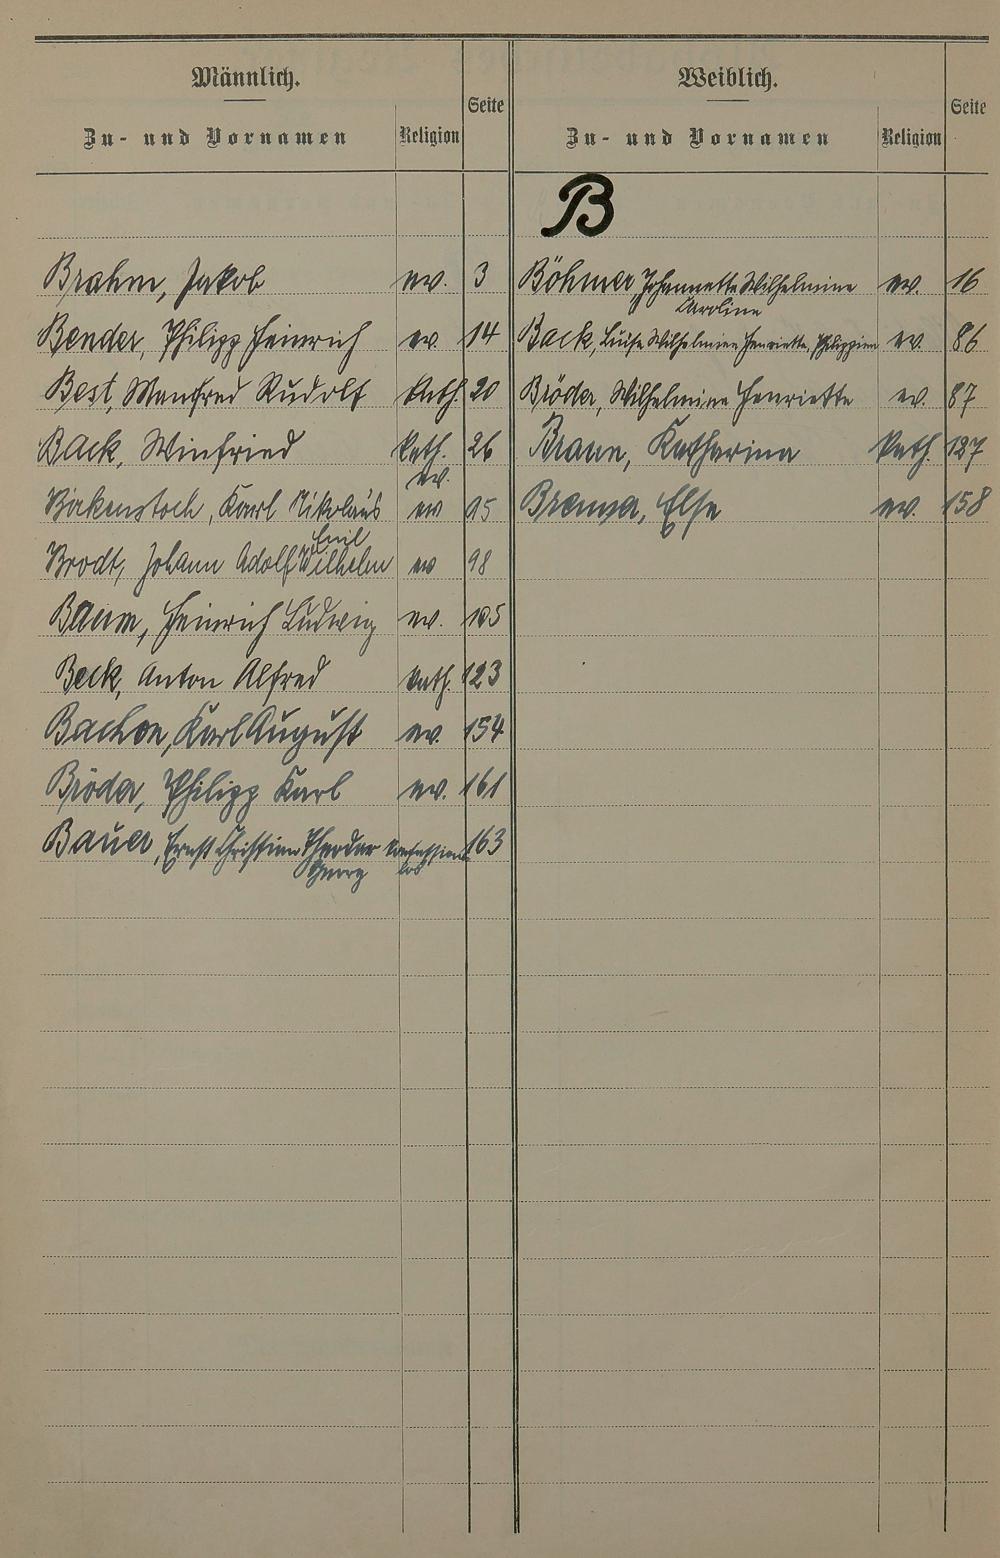 Männlich.
Zu- und Vornamen Religion Seite
Weiblich.
Zu- und Vornamen Religion Seite
B
Brahm, Jakob ev. 3
Bender, Philipp Heinrich ev. 14
Best, Manfred Rudolf kath. 20
Back, Winfried kath. 26
ev.
Birkenstock, Karl Nikolaus ev 95
Emil
Brodt, Johann Adolf Wilhelm ev 98
Baum, Heinrich Ludwig ev. 105
Beck, Anton Alfred kath. 123
Bachon, Karl August ev. 154
Bröder, Philipp Karl ev. 161
Bauer, Ernst Christian Theodor konfessions 163
Georg los
Böhmer Johannette Wilhelmine ev. 16
Karoline
Back, Luise Wilhelmine Henriette, Philippine ev. 86
Bröder, Wilhelmine Henriette ev. 87
Braun, Katharina kath. 127
Else ev. 158